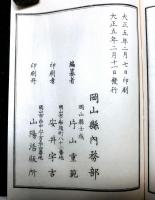 大正五年二月七日印刷
大正五年二月十一日發行
岡山縣內務部
編纂者
岡山縣士族
片山重範
印刷者
安井宇吉
印刷所
山陽活版所